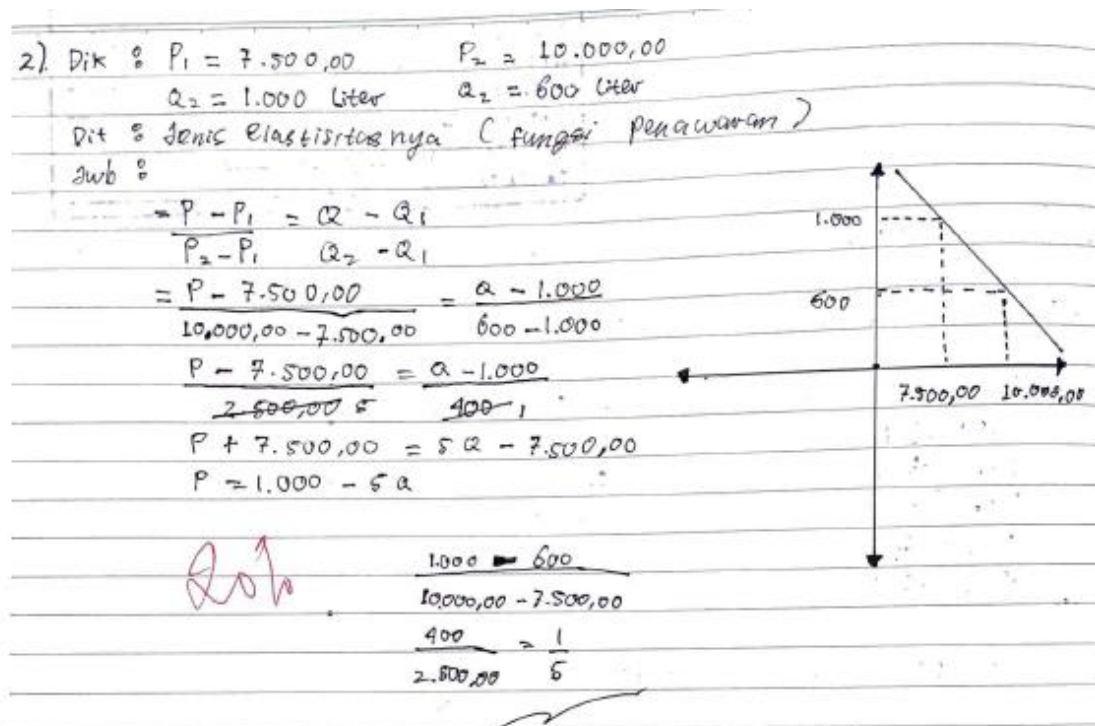 2). Dik : P₁ = 7.500,00 P₂ = 10.000,00
Q₂ = 1.000 Liter Q₂ = 600 Liter
Dit : Jenis elastisitasnya (fungsi penawaran)
Jwb :
= P - P₁ = Q - Q₁
P₂ - P₁ Q₂ - Q₁
= P - 7.500,00 = Q - 1.000
10.000,00 - 7.500,00 600 - 1.000
P - 7.500,00 = Q - 1.000
2.500,00 5 400 1
P + 7.500,00 = 5Q - 7.500,00
P = 1.000 - 5Q
1.000
600
7.500,00 10.000,00
20%
1.000 - 600
10.000,00 - 7.500,00
400 = 1
2.500,00 5